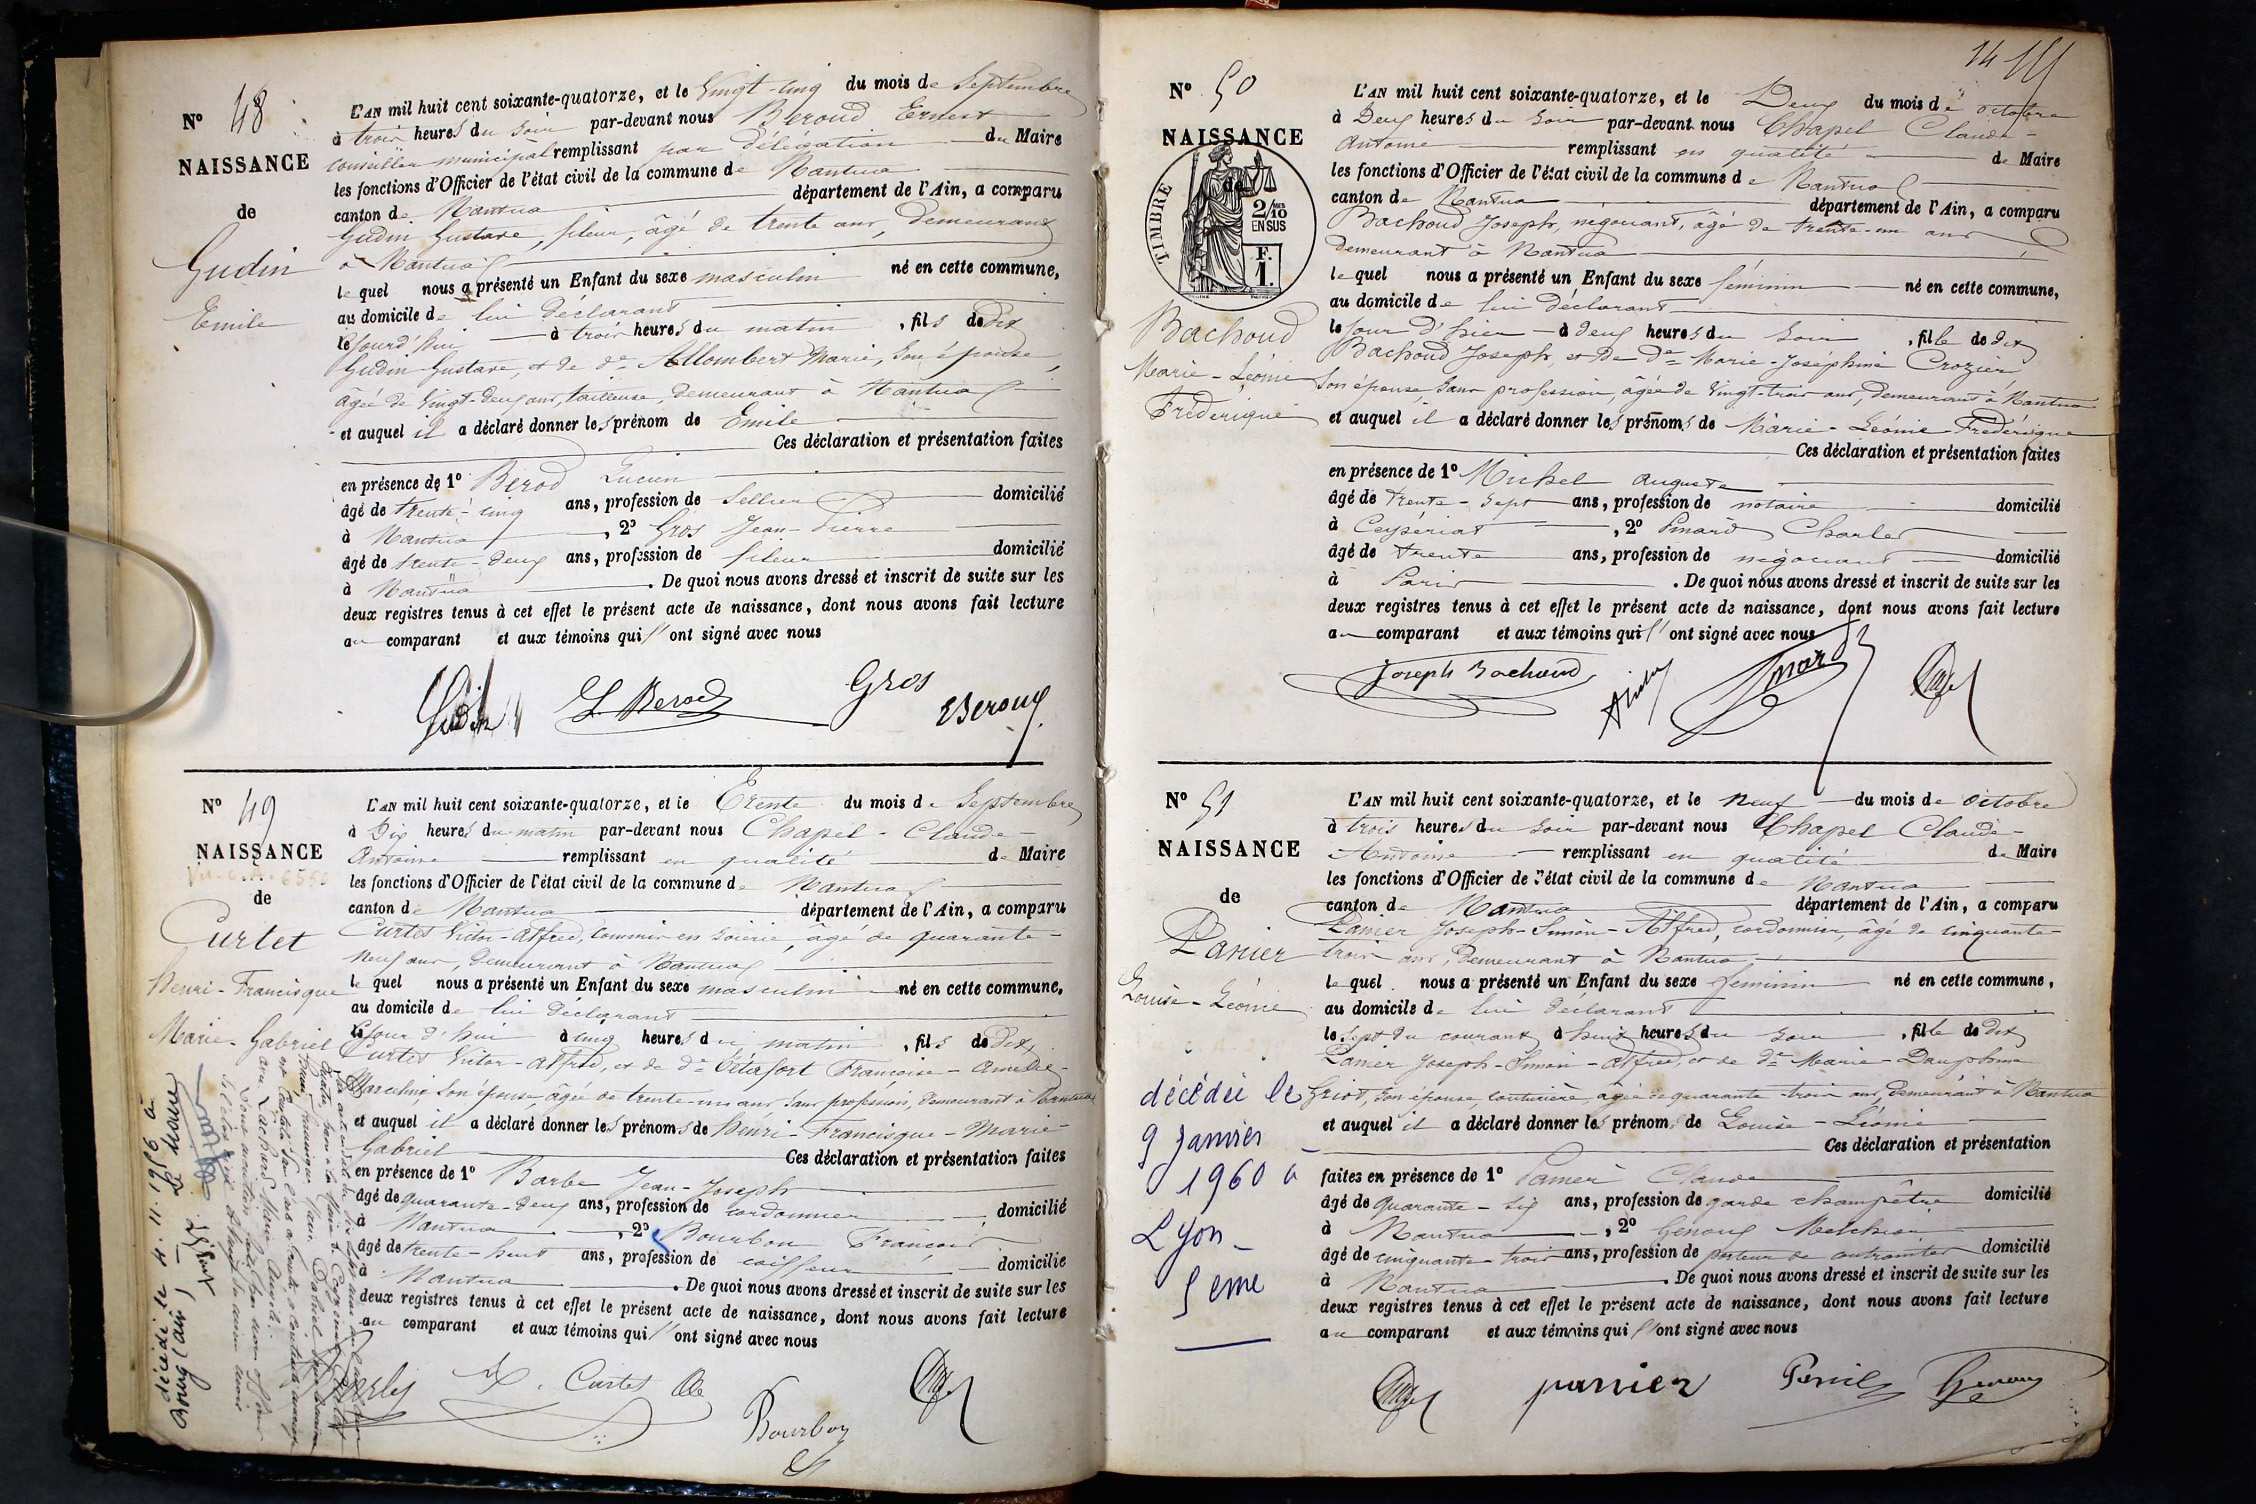 N° 48
NAISSANCE
de
Gudin
Emile
L'AN mil huit cent soixante-quatorze, et le Vingt-cinq du mois de Septembre
à trois heures du soir par-devant nous Beroud Ernest
conseiller municipal remplissant par délégation du Maire
les fonctions d'Officier de l'état civil de la commune de Nantua
canton de Nantua département de l'Ain, a comparu
Gudin Gustave, fileur, âgé de trente ans, demeurant
à Nantua
le quel nous a présenté un Enfant du sexe masculin né en cette commune,
au domicile de lui déclarant
le jourd'hui à trois heures du matin, fils de dix
Gudin Gustave, et de de Allombert Marie, son épouse,
âgée de vingt-deux ans, tailleuse, demeurant à Nantua
et auquel il a déclaré donner les prénom de Emile
Ces déclaration et présentation faites
en présence de 1° Berod Lucien
âgé de trente-cinq ans, profession de Sellier domicilié
à Nantua, 2° Gros Jean-Pierre
âgé de trente-deux ans, profession de fileur domicilié
à Nantua. De quoi nous avons dressé et inscrit de suite sur les
deux registres tenus à cet effet le présent acte de naissance, dont nous avons fait lecture
au comparant et aux témoins qui l'ont signé avec nous
Gudin L. Berod Gros EBeroud
N° 49
NAISSANCE
de
Curtet
Henri-Francisque
Marie-Gabriel
L'AN mil huit cent soixante-quatorze, et le Trente du mois de Septembre
à Dix heures du matin par-devant nous Chapel-Claude-
Antoine remplissant en qualité de Maire
les fonctions d'Officier de l'état civil de la commune de Nantua
canton de Nantua département de l'Ain, a comparu
Curtet Victor-Alfred, commis en soierie, âgé de quarante-
neuf ans, demeurant à Nantua
le quel nous a présenté un Enfant du sexe masculin né en cette commune,
au domicile de lui déclarant
le jour d'hui à cinq heures du matin, fils de dix
Curtet Victor-Alfred, et de de Françoise-Amélie-
Marceline son épouse, âgée de trente-un ans, sans profession, demeurant à Nantua
et auquel il a déclaré donner les prénoms de Henri-Francisque-Marie-
Gabriel Ces déclaration et présentation faites
en présence de 1° Barbe Jean-Joseph
âgé de quarante-deux ans, profession de cordonnier domicilié
à Nantua, 2° Bourbon François
âgé de trente-huit ans, profession de coiffeur domicilié
à Nantua. De quoi nous avons dressé et inscrit de suite sur les
deux registres tenus à cet effet le présent acte de naissance, dont nous avons fait lecture
au comparant et aux témoins qui l'ont signé avec nous
Curtet
Bourbon
décédé le 4.11.1956 à
Bourg (Ain)
Le Maire
14
N° 50
NAISSANCE
de
TIMBRE
2/10
EN SUS
F.
1.
Bachoud
Marie-Léonie
Frédérique
L'AN mil huit cent soixante-quatorze, et le Deux du mois de octobre
à Deux heures du soir par-devant nous Chapel Claude-
Antoine remplissant en qualité de Maire
les fonctions d'Officier de l'état civil de la commune de Nantua
canton de Nantua département de l'Ain, a comparu
Bachoud Joseph, négociant, âgé de trente-un ans
demeurant à Nantua
le quel nous a présenté un Enfant du sexe féminin né en cette commune,
au domicile de lui déclarant
le jour d'hier à deux heures du soir, fille de dix
Bachoud Joseph, et de De Marie-Joséphine Crozier
son épouse sans profession, âgée de vingt-trois ans, demeurant à Nantua
et auquel il a déclaré donner les prénoms de Marie-Léonie Frédérique
Ces déclaration et présentation faites
en présence de 1° Michel Auguste
âgé de trente-sept ans, profession de notaire domicilié
à Ceyzériat, 2° Pinard Charles
âgé de trente ans, profession de négociant domicilié
à Paris. De quoi nous avons dressé et inscrit de suite sur les
deux registres tenus à cet effet le présent acte de naissance, dont nous avons fait lecture
au comparant et aux témoins qui l'ont signé avec nous
Joseph Bachoud Pinard
N° 51
NAISSANCE
de
Panier
Louise-Léonie
décédée le
9 Janvier
1960 à
Lyon-
5eme
L'AN mil huit cent soixante-quatorze, et le Neuf du mois de Octobre
à trois heures du soir par-devant nous Chapel Claude-
Antoine remplissant en qualité de Maire
les fonctions d'Officier de l'état civil de la commune de Nantua
canton de Nantua département de l'Ain, a comparu
Panier Joseph-Simon-Alfred, cordonnier, âgé de cinquante-
trois ans, demeurant à Nantua
le quel nous a présenté un Enfant du sexe féminin né en cette commune,
au domicile de lui déclarant
le sept du courant à huit heures du soir, fille de dix
Panier Joseph-Simon-Alfred, et de de Marie-Dauphine
Griot, son épouse, couturière, âgée de quarante-trois ans, demeurant à Nantua
et auquel il a déclaré donner les prénom de Louise-Léonie
Ces déclaration et présentation
faites en présence de 1° Claude
âgé de Quarante-six ans, profession de garde champêtre domicilié
à Nantua, 2° Genoux Melchior
âgé de cinquante trois ans, profession de porteur de contraintes domicilié
à Nantua. De quoi nous avons dressé et inscrit de suite sur les
deux registres tenus à cet effet le présent acte de naissance, dont nous avons fait lecture
au comparant et aux témoins qui l'ont signé avec nous
panier Genoux